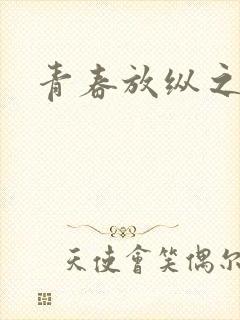 青春放纵之
天使會笑偶尔